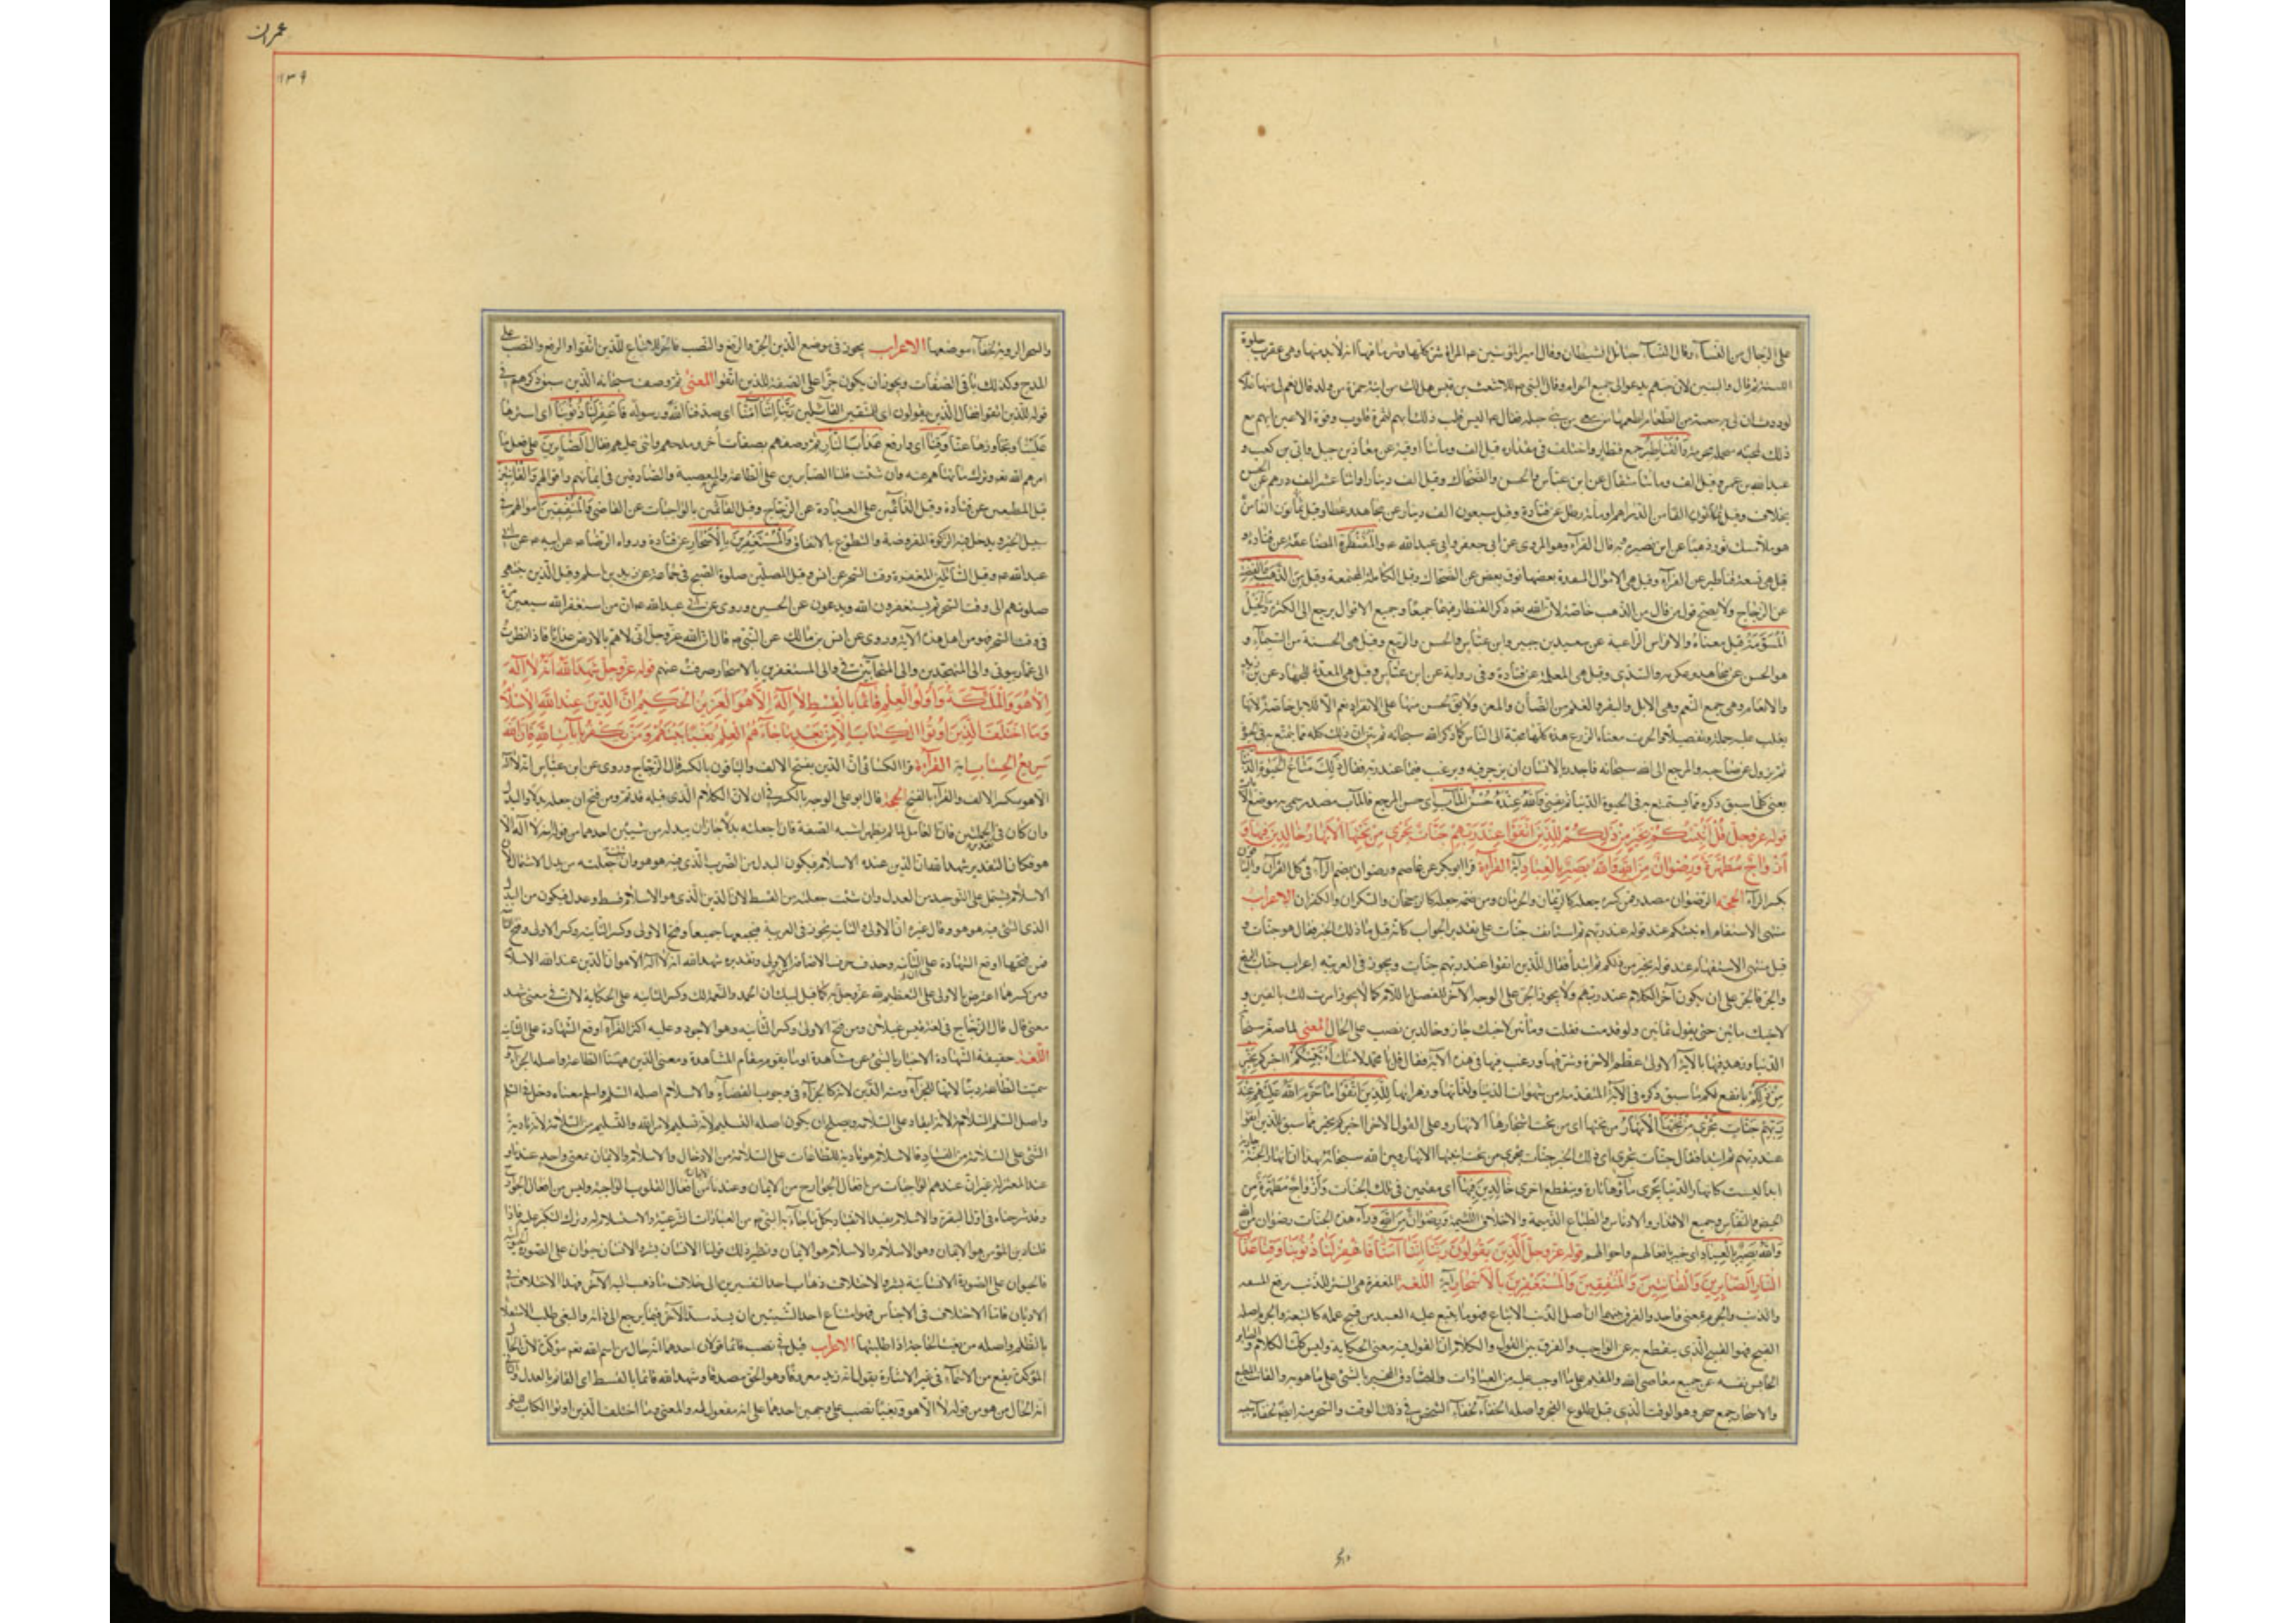 على الرجال من النساء وقال النساء حبائل الشيطان وقال امير المؤمنين ع المراة شر كلها وشر ما فيها انه لا بد منها وهي عقرب حلوة
اللسبة ثم قال والبنين لان حبهم يدعو الى جميع الحرام وقال النبي ص للاشعث بن قيس هل لك من ابنة حمزة من ولد قال نعم لي منها غلام
ذلك لمحبنة مبخلة محزنة والقناطير جمع قنطار واختلف في مقداره قيل الف ومائتا اوقية عن معاذ بن جبل وابي بن كعب و
عبد الله بن عمر وقيل الف ومائتا مثقال عن ابن عباس والحسن والضحاك وقيل الف دينار او اثنا عشر الف درهم عن الحسن
بخلاف وقيل ثمانون الفا من الدراهم او مائة رطل عن قتادة وقيل سبعون الف دينار عن مجاهد وعطا وقيل
هو ملأ مسك ثور ذهبا عن ابي نضرة وبه قال الفرآء وهو المروي عن ابي جعفر وابي عبد الله ع والمقنطرة المضاعفة عن قتادة و
قيل هي تسعة قناطير عن الفرآء وقيل هي الاموال المنضدة بعضها فوق بعض عن الضحاك وقيل الكاملة المجتمعة وقيل من الذهب والفضة
عن الزجاج ولا يصح قول من قال من الذهب خاصة لان الله تعه ذكر القنطار فيهما جميعا وجميع الاقوال يرجع الى الكثرة والخيل
المسومة قيل معناه والافراس الراعية عن سعيد بن جبير وابن عباس والحسن والربيع وقيل هي الحسنة من السيماء و
هو الحسن عن مجاهد وعكرمة والسدي وقيل هي المعلمة عن قتادة وفي رواية عن ابن عباس وقيل هي المعدة للجهاد عن ابن زيد
والانعام وهي جمع النعم وهي الابل والبقر والغنم من الضأن والمعز ولا يق لجنس منها على الانفراد نعم الا للابل خاصة لانها
يغلب عليه جملة وتفصيلا والحرث معناه الزرع هذه كلها محببة الى الناس كما ذكر الله سبحانه ثم بين ان ذلك كله مما يتمتع به في الحيوة
ثم يزول عن صاحبه والمرجع الى الله سبحانه فاجدر بالانسان ان يزهد فيه ويرغب فيما عند ربه فقال ذلك متاع الحيوة الدنيا
يعني كل ما سبق ذكره مما يستمتع به في الحيوة الدنيا ثم يفنى والله عنده حسن المآب اي حسن المرجع فالمآب مصدر سمي به موضع الاياب
قوله عز وجل قل أؤنبئكم بخير من ذلكم للذين اتقوا عند ربهم جنات تجري من تحتها الانهار خالدين فيها و
أزواج مطهرة ورضوان من الله والله بصير بالعباد آية القرآءة قرا ابو بكر عن عاصم ورضوان بضم الرآء في كل القرآن والباقون
بكسر الرآء الحجة الرضوان مصدر فمن كسره جعله كالرئمان والحرمان ومن ضمه جعله كالرجحان والشكران والكفران الاعراب
منتهى الاستفهام ام نبئكم عند قوله عند ربهم ثم استانف جنات على تقدير الجواب كانه قيل ما ذلك الخير فقال هو جنات و
قيل منتهى الاستفهام عند قوله بخير من ذلكم ثم ابتدأ فقال للذين اتقوا عند ربهم جنات ويجوز في العربية اعراب جنات الرفع
والجر فالجر على ان يكون آخر الكلام عند ربهم ولا يجوز الجر على الوجه الآخر للفصل باللام كما لا يجوز امرت لك بالفين و
لاخيك مائتين حتى يقول بمائتين ولو قدمت فقلت ومائتين لاخيك جاز وخالدين نصب على الحال المعنى لما صغر سبحانه
الدنيا وزهد فيها بالآية الاولى عظم الاخرة وشرفها ورغب فيها في هذه الآية فقال قل يا محمد لامتك أؤنبئكم اخبركم بخير
من ذلكم بانفع لكم مما سبق ذكره في الآية المتقدمة من شهوات الدنيا ولذاتها وزهراتها للذين اتقوا ما حرم الله عليهم عند
ربهم جنات تجري من تحتها الانهار من تحتها اي من تحت اشجارها الانهار وعلى القول الآخر اخبركم بخير مما سبق للذين اتقوا
عند ربهم ثم ابتدا فقال جنات تجري اي ذلك الخير جنات تجري من تحت ابنيتها الانهار وبين الله سبحانه بهذا ان انهار الجنة جارية
ابدا ليست كانهار الدنيا يجري ماؤها تارة وينقطع اخرى خالدين فيها اي مقيمين في تلك الجنات وأزواج مطهرة من
الحيض والنفاس وجميع الاقذار والادناس والطبائع الذميمة والاخلاق اللئيمة ورضوان من الله ورآء هذه الجنات رضوان من الله
والله بصير بالعباد اي خبير بافعالهم واحوالهم قوله عز وجل الذين يقولون ربنا اننا آمنا فاغفر لنا ذنوبنا وقنا عذاب
النار الصابرين والصادقين والقانتين والمنفقين والمستغفرين بالاسحار آية اللغة المغفرة هي الستر للذنب برفع التبعة
والذنب والجرم بمعنى واحد والفرق بينهما ان اصل الذنب الاتباع فهو ما يتبع عليه العبد من قبيح عمله كالتبعة والجرم اصله
القطع فهو القبيح الذي ينقطع به عن الواجب والفرق بين القول والكلام ان القول فيه معنى الحكاية وليس كك الكلام والصابر
الحابس نفسه عن جميع معاصي الله والمقيم على ما اوجب عليه من العبادات والصادق المخبر بالشئ على ما هو به والقانت المطيع
والاسحار جمع سحر وهو الوقت الذي قبل طلوع الفجر واصله الخفاء لخفاء الشخص في ذلك الوقت والسحر منه ايضا لخفاء سببه
عمران
١٣٩
والسحر الرية لخفاء موضعها الاعراب يجوز في موضع الذين الجر والرفع والنصب فالجر للاتباع للذين اتقوا والرفع والنصب على
المدح وكذلك باقي الصفات ويجوز ان يكون جرا على الصفة للذين اتقوا المعنى ثم وصف سبحانه الذين سبق ذكرهم في
قوله للذين اتقوا فقال الذين يقولون اي المتقين القائلين ربنا اننا آمنا اي صدقنا الله ورسوله فاغفر لنا ذنوبنا اي استرها
علينا وتجاوزها عنا وقنا اي وادفع عنا عذاب النار ثم وصفهم بصفات أخر ومدحهم واثنى عليهم فقال الصابرين على فعل ما
امرهم الله تعه وترك ما نهاهم عنه وان شئت قلنا الصابرين على الطاعة وعن المعصية والصادقين في ايمانهم واقوالهم والقانتين
قيل المطيعين عن قتادة وقيل الدائمين على العبادة عن الزجاج وقيل القائمين بالواجبات عن القاضي والمنفقين اموالهم في
سبيل الخير ويدخل فيه الزكوة المفروضة والتطوع بالانفاق والمستغفرين بالأسحار عن قتادة ورواه الرضا ع عن ابيه ع عن ابي
عبد الله ع وقيل السائلين المغفرة وقت السحر عن انس وقيل المصلين صلوة الصبح في جماعة عن زيد بن اسلم وقيل الذين ينتهي
صلوتهم الى وقت السحر ثم يستغفرون الله ويدعون عن الحسن وروي عن ابي عبد الله ع ان من استغفر الله سبعين مرة
في وقت السحر فهو من اهل هذه الآية وروى عن انس بن مالك عن النبي ص قال ان الله عز وجل اني لاهم بالارض عذابا فاذا نظرت
الى عمار بيوتي والى المتهجدين والى المتحابين في والى المستغفرين بالاسحار صرفت عنهم قوله عز وجل شهد الله أنه لا إله
إلا هو والملائكة وأولوا العلم قائما بالقسط لا إله إلا هو العزيز الحكيم إن الدين عند الله الإسلام
وما اختلف الذين اوتوا الكتاب إلا من بعد ما جاءهم العلم بغيا بينهم ومن يكفر بآيات الله فإن الله
سريع الحساب آية القرآءة قرا الكسائي ان الدين بفتح الالف والباقون بالكسر قال الزجاج وروى عن ابن عباس انه لا اله
الا هو بكسر الالف والقرآءة بالفتح الحجة قال ابو علي الوجه بالكسر في ان لان الكلام الذي قبله قد تم ومن فتح ان جعله بدلا والبدل
هو فكان التقدير شهد الله ان الدين عند الله الاسلام فيكون البدل من الضرب الذي فيه هو هو وان شئت جعلته من بدل الاشتمال لان
الاسلام يشتمل على التوحيد من العدل وان شئت جعلته من القسط لان الدين الذي هو الاسلام قسط وعدل فيكون من البدل
الذي الشئ فيه هو هو وقال غيره ان الاولى والثانية يجوز في العربية فتحهما جميعا وكسرهما جميعا وفتح الاولى وكسر الثانية وكسر الاولى وفتح الثانية
فمن فتحهما اوقع الشهادة على الثانية وحذف حرف الاضافة من الاولى وتقديره شهد الله انه لا اله الا هو ان الدين عند الله الاسلام
ومن كسرهما اعترض بالاولى على التعظيم لله عز وجل به كما قيل لبيك ان الحمد والنعمة لك وكسر الثانية على الحكاية لان في معنى شهد
معنى قال قال الزجاج في لغة قيس عيلان ومن فتح الاولى وكسر الثانية وهو الاجود وعليه اكثر القرآء اوقع الشهادة على الثانية
اللغة حقيقة الشهادة الاخبار بالشئ عن مشاهدة او ما يقوم مقام المشاهدة ومعنى الدين ههنا الطاعة واصله الجزاء و
سميت الطاعة دينا لانها للجزاء ومنه الدين لانه كالجزاء في وجوب القضاء والاسلام اصله السلم واسلم معناه دخل في السلم
واصل السلم السلامة لانه انقياد على السلامة ويصلح ان يكون اصله التسليم لانه تسليم لامر الله والتسليم من السلامة لانه تادية
الشئ على السلامة من الفساد فالاسلام هو تادية الطاعات على السلامة من الادغال والاسلام والايمان بمعنى واحد عندنا و
عند المعتزلة غير ان عندهم الواجبات من افعال الجوارح من الايمان وعندنا الايمان من افعال القلوب الواجبة وليس من افعال الجوارح
وقد شرحناه في اول البقرة والاسلام يفيد الانقياد بكل ما جاء به النبي ص من العبادات الشرعية والاستسلام له وترك النكير عليه فاذا
قلنا دين المؤمن هو الايمان وهو الاسلام والاسلام هو الايمان ونظير ذلك قولنا الانسان بشر والانسان حيوان على الصورة الانسية
فالحيوان على الصورة الانسانية بشر والاختلاف ذهاب احد النفسين الى خلاف ما ذهب اليه الآخر فهذا الاختلاف في
الاديان فاما الاختلاف في الاجناس فهو امتناع احد الشيئين ان يسد مسد الآخر فيما يرجع الى ذاته والبغي طلب الاستعلاء
بالظلم واصله من بغيت الحاجة اذا طلبتها الاعراب قيل في نصب قائما قولان احدهما انه حال من اسم الله تعه مؤكدة لان الحال
المؤكدة يقع من الاسماء في غير الاشارة يقول انه زيد معروفا وهو الحق مصدقا وشهد الله قائما بالقسط اي القائم بالعدل والثاني
انه الحال من هو من قوله لا اله الا هو وبغيا نصب على وجهين احدهما على انه مفعول له والمعنى وما اختلف الذين اوتوا الكتاب للبغي